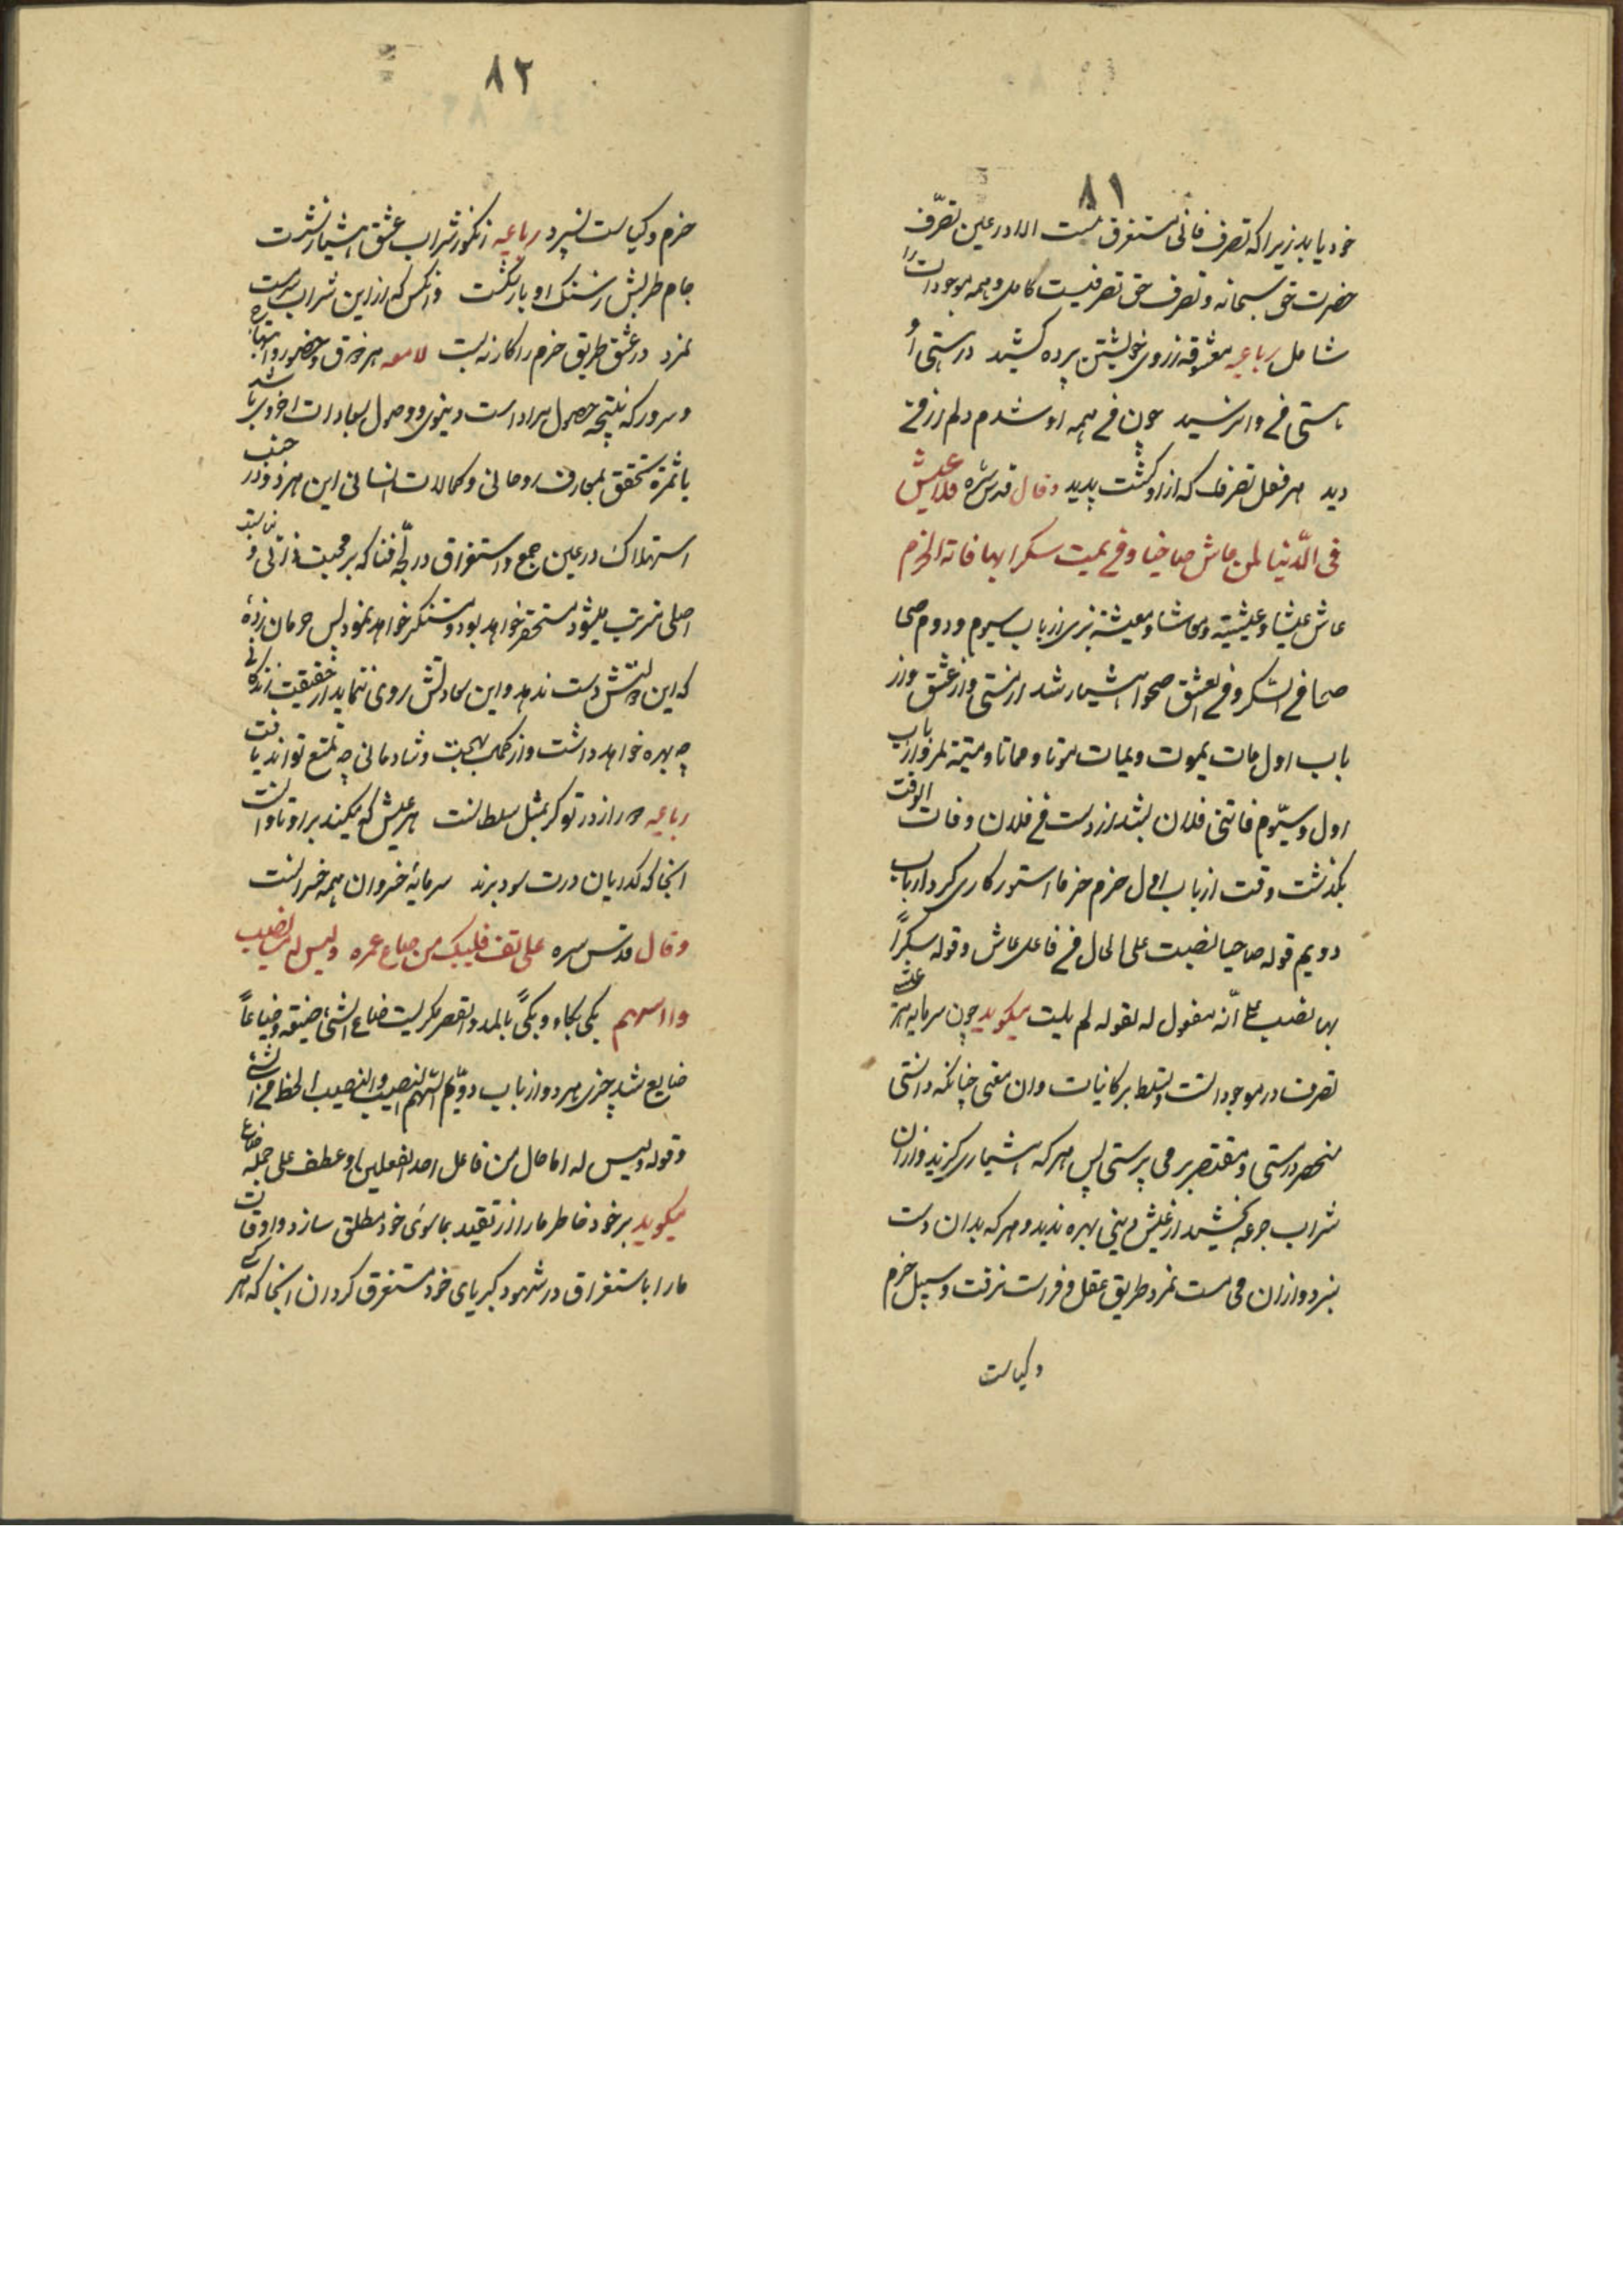 ٨١
خود یابد زیرا که تصرف فانی مستغرق نیست الا در عین تصرّف
حضرت حق سبحانه و تصرف حق تصرفیست کامل و همه موجودات را
شامل رباعیه معشوقه ز روی خویشتن پرده کشید در هستی او
هستی فی وا نرسید چون فی همه او شدم دلم از فی
دید هر فعل تصرف که از او گشت پدید وقال قدس سرّه فلا عیش
فی الدّنیا لمن عاش صاحیا و فی یمت سکرا بها فاته الحزم
عاش عیشا و عیشیته و معاشا و معیشة بزی از باب سیوم و دوم صحی
صحا فی السکر و فی العشق صحوا هشیار شد از مستی و از عشق و از
باب اول مات یموت و یمات موتا و مماتا و میتة بمرد از باب
اول و سیّوم فاتنی فلان بشد از دست فی فلان و فات الوقت
بگذشت وقت از باب اول حزم حزما استوار کاری کرد از باب
دویم قوله صاحیا نصبت علی الحال فی فاعل عاش و قوله سکراً
بها نصب علی انّه مفعول له لقوله لم یمت میگوید چون سرمایه هر عیش
تصرف در موجودات و تسلط بر کاینات و ان معنی چنانکه دانستی
منحصر در مستی و مقتصر بر می پرستی پس هر که هشیاری گزید و از ان
شراب جرعه نچشید از عیش دینی بهره ندید و هر که بدان دست
نبرد و از ان می مست نمرد طریق عقل و فراست نرفت و سبیل حزم
و کیاست
٨٢
حزم و کیاست نسپرد رباعیه زنگونه شراب عشق هشیار نشدت
جام طربش ز سنک ادبار شکست وانکس که از این شراب سرمست
نمرد در عشق طریق حزم را کار نه بست لامعه هر ذوق و حضور و ابتهاج
و سرور که نتیجه حصول مرادات دنیوی و وصول بسعادات اخروی باشد
یا ثمرۀ تحقق بمعارف روحانی و کمالات انسانی این هر دو در جنب
استهلاک در عین جمع و استغراق در لجّه فنا که بر محبت ذاتی و
اصلی مترتب میشود مستحقر خواهد بود و مستنکر خواهد نمود پس حرمان زدۀ
که این دولتش دست ندهد و این سعادتش روی ننماید از حقیقت زندگانی
چه بهره خواهد داشت و از کمال بهجت و شادمانی چه تمتع تواند یافت
رباعیه هر راز در تو کر بمثل سلطانست هر عیش که میکند بر او تاوانست
انجا که گدایان درت سود برند سرمایهٔ خسروان همه خسرانست
وقال قدس سره علی نفسه فلیبک من ضاع عمره ولیس له منها نصیب
ولا سهم بکی بکاء و بکیً بالمد والقصر بگریست ضاع الشیء ضیعة و ضیاعاً
ضایع شد چیزی هر دو از باب دویّم السّهم النصیب والنصیب الحظ من الشیء
و قوله ولیس له اما حال من فاعل احد الفعلین او عطف علی جمله ضاع
میگوید بر خود خاطر ما را از تقید بماسوی خود مطلق سازد و اوقات
ما را باستغراق در شهود کبریای خود مستغرق گردان انجا که هر کس